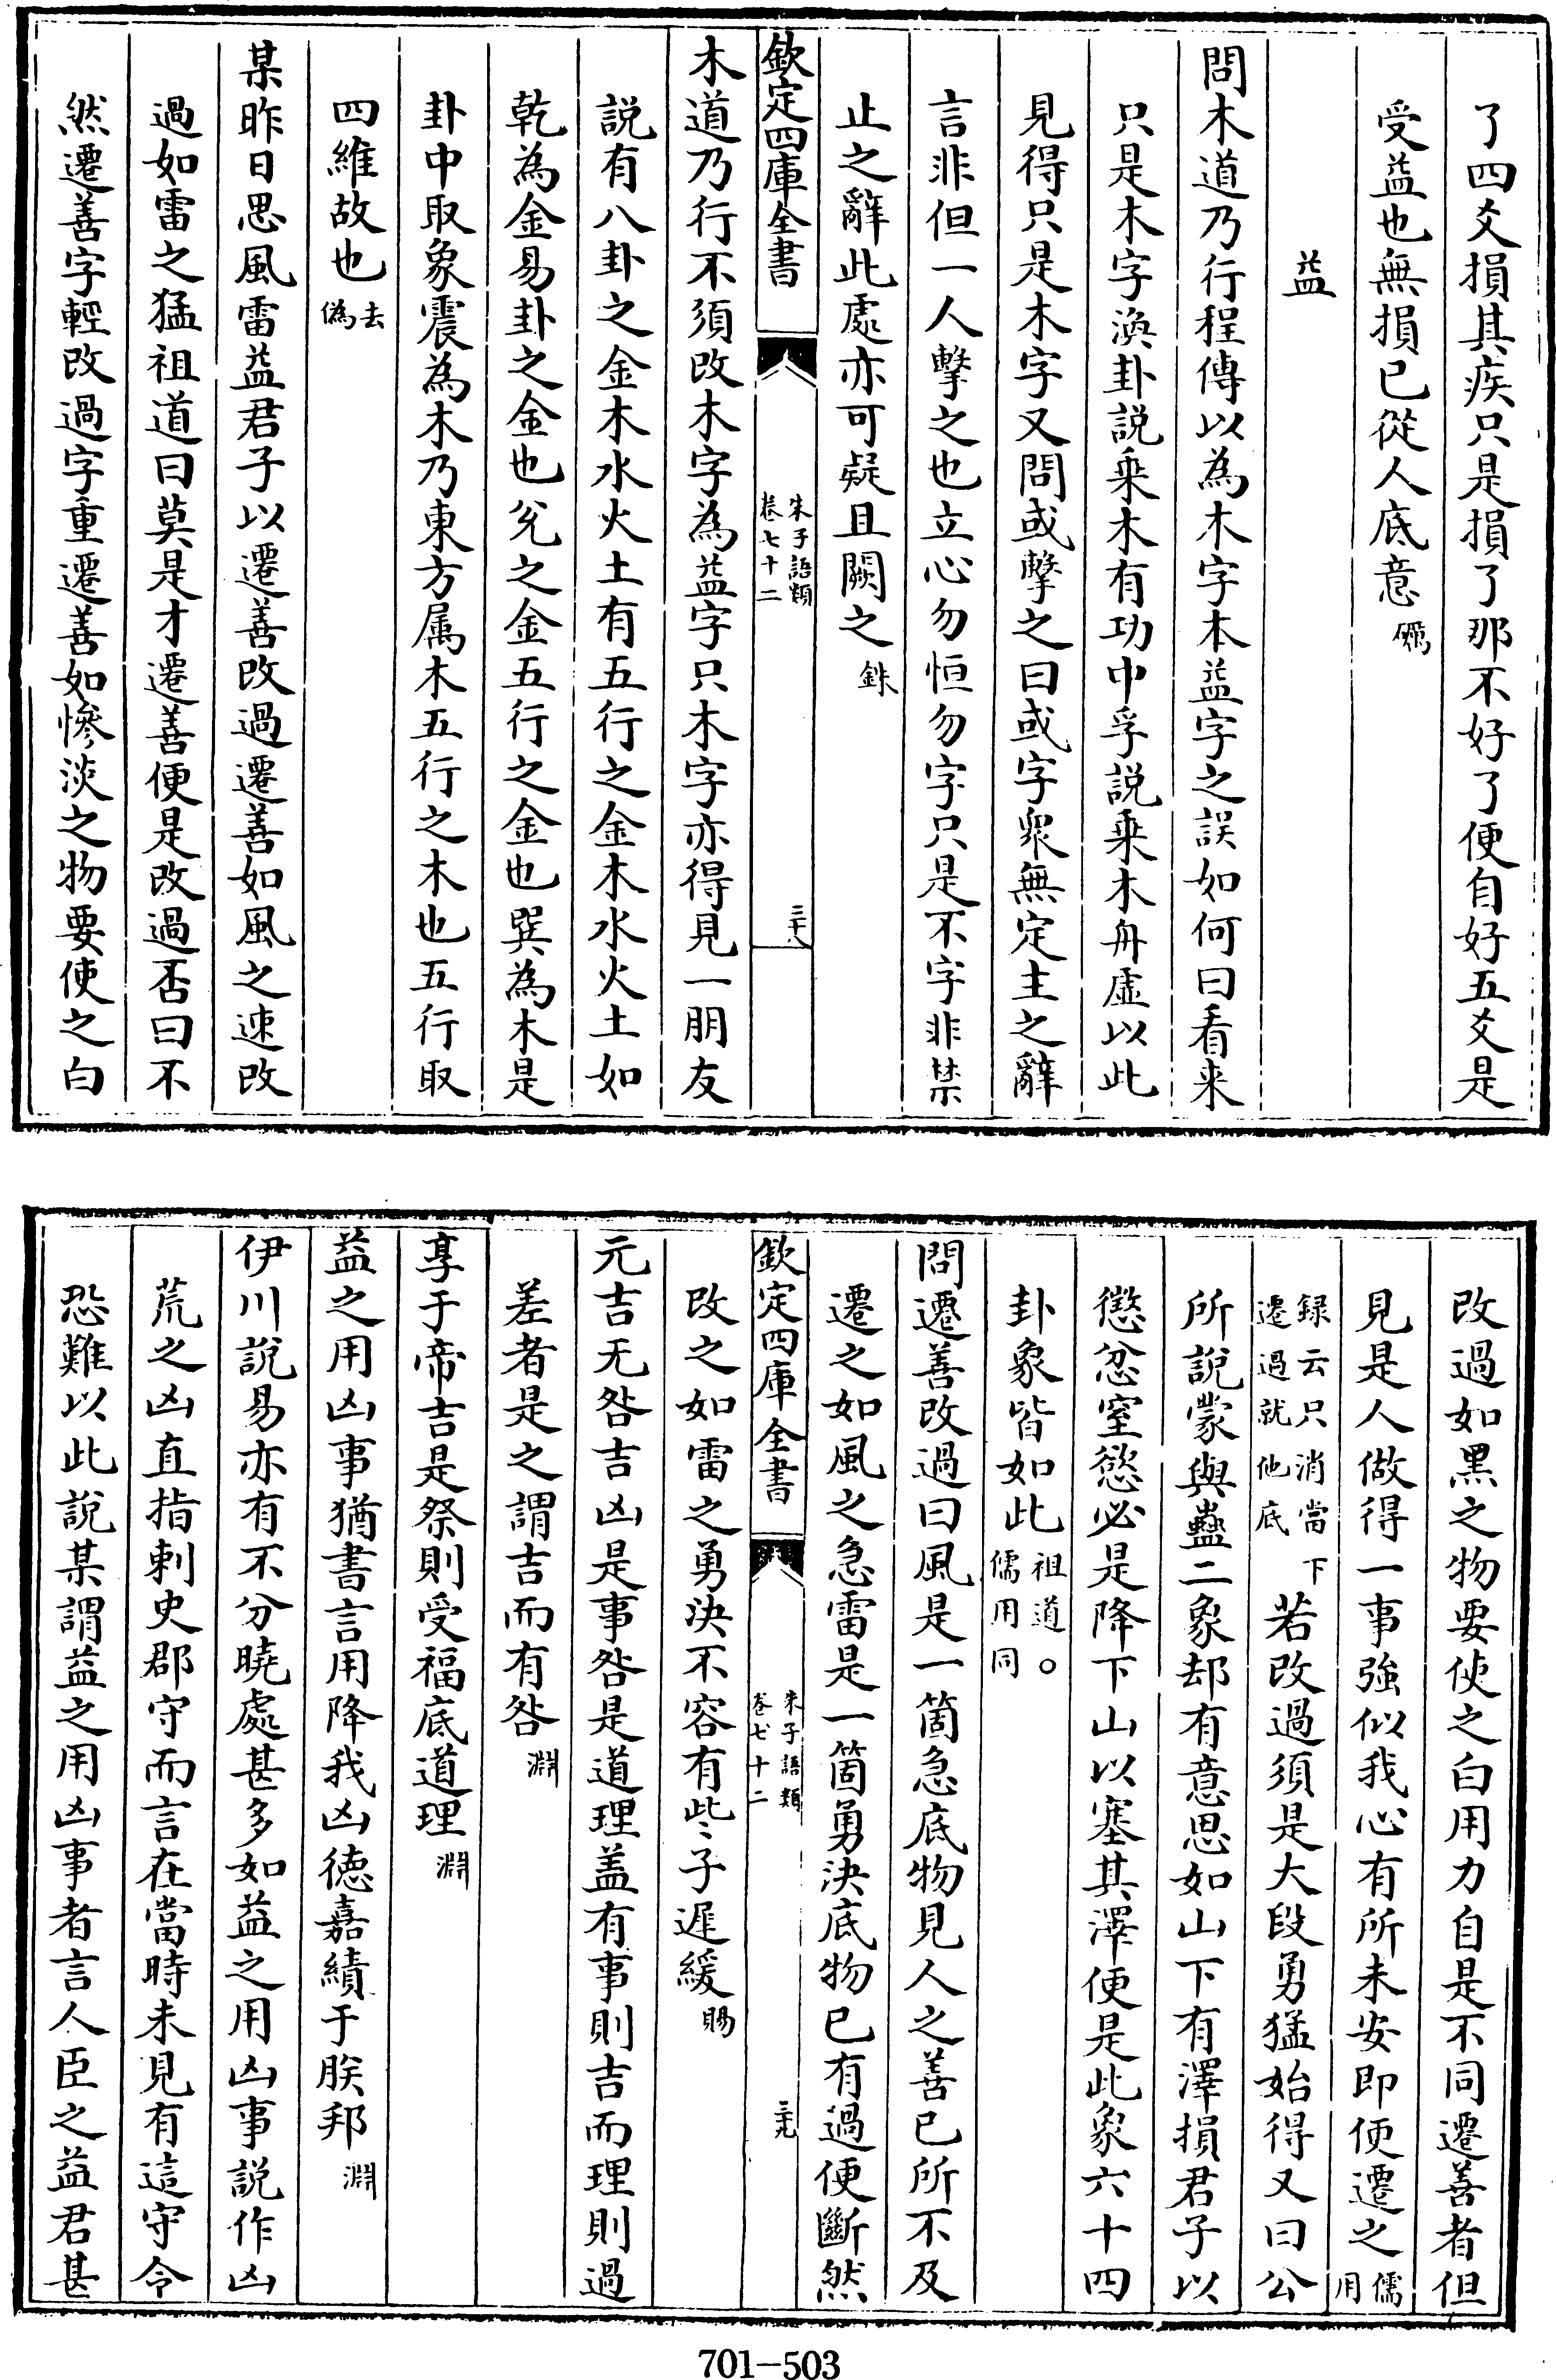 了四爻損其疾只是損了那不好了便自好五爻是
受益也無損已從人底意 礪
益
問木道乃行程傳以為木字本益字之誤如何曰看来
只是木字渙卦説乗木有功中孚説乗木舟虚以此
見得只是木字又問或擊之曰或字衆無定主之辭
言非但一人擊之也立心勿恒勿字只是不字非禁
止之辭此處亦可疑且闕之 銖
欽定四庫全書
朱子語類
卷七十二
三十八
木道乃行不須改木字為益字只木字亦得見一朋友
説有八卦之金木水火土有五行之金木水火土如
乾為金易卦之金也兊之金五行之金也巽為木是
卦中取象震為木乃東方属木五行之木也五行取
四維故也 去偽
某昨日思風雷益君子以遷善改過遷善如風之速改
過如雷之猛祖道曰莫是才遷善便是改過否曰不
然遷善字輕改過字重遷善如慘淡之物要使之白
改過如黑之物要使之白用力自是不同遷善者但
見是人做得一事強似我心有所未安即便遷之 儒用
録云只消當下遷過就他底 若改過須是大段勇猛始得又曰公
所説蒙與蠱二象却有意思如山下有澤損君子以
懲忿窒慾必是降下山以塞其澤便是此象六十四
卦象皆如此 祖道○儒用同
問遷善改過曰風是一箇急底物見人之善已所不及
遷之如風之急雷是一箇勇決底物已有過便斷然
欽定四庫全書
朱子語類
卷七十二
三十九
改之如雷之勇決不容有些子遲緩 賜
元吉无咎吉凶是事咎是道理盖有事則吉而理則過
差者是之謂吉而有咎 淵
享于帝吉是祭則受福底道理 淵
益之用凶事猶書言用降我凶德嘉績于朕邦 淵
伊川説易亦有不分曉處甚多如益之用凶事説作凶
荒之凶直指刺史郡守而言在當時未見有這守令
恐難以此説某謂益之用凶事者言人臣之益君甚
701-503